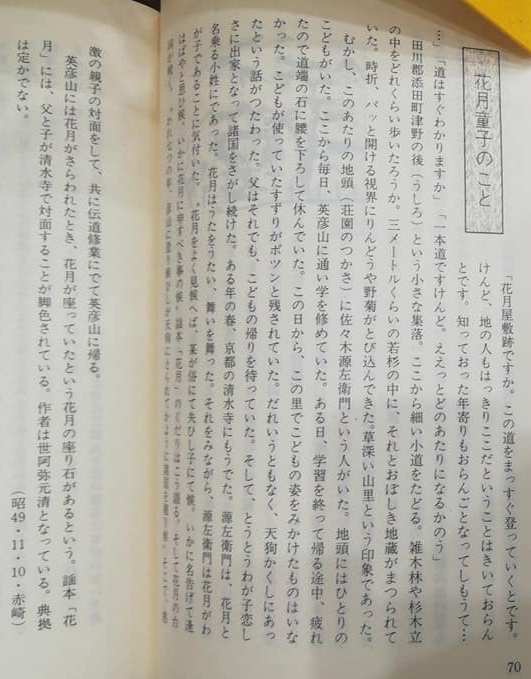 花月童子のこと
「花月屋敷跡ですか。この道をまっすぐ登っていくとです。
けんど、地の人もはっきりここだということはきいておらん
とです。知っておった年寄りもおらんごとなってしもうて…
…」「道はすぐわかりますか」「一本道ですけんど。ええっとどのあたりになるかのう」
田川郡添田町津野の後（うしろ）という小さな集落。ここから細い小道をたどる。雑木林や杉木立
の中をどれくらい歩いたろうか。三メートルくらいの若杉の中に、それとおぼしき地蔵がまつられて
いた。時折、パッと開ける視界にりんどうや野菊がとび込んできた。草深い山里という印象であった。
むかし、このあたりの地頭（荘園のつかさ）に佐々木源左衛門という人がいた。地頭にはひとりの
こどもがいた。ここから毎日、英彦山に通い学を修めていた。ある日、学習を終って帰る途中、疲れ
たので道端の石に腰を下ろして休んでいた。この日から、この里でこどもの姿をみかけたものはいな
かった。こどもが使っていたすずりがポツンと残されていた。だれいうともなく、天狗かくしにあっ
たという話がつたわった。父はそれでも、こどもの帰りを待っていた。そして、とうとうわが子恋し
さに出家となって諸国をさがし続けた。ある年の春、京都の清水寺にもうでた。源左衛門は、花月と
名乗る小姓にであった。花月はうたをうたい、舞いを舞った。それをみながら、源左衛門は花月がわ
が子であることに気付いた。「花月をよく見候へば、某が俗にて失ひし子にて候。いかに名告げて逢
はばやと思ひ候、いかに花月に申すべき事の候」謡本「花月」のくだりはこう語る。そして花月の台
激の親子の対面をして、共に伝道修業にでて英彦山に帰る。
英彦山には花月がさらわれたとき、花月が座っていたという花月の座り石があるという。謡本「花
月」には、父と子が清水寺で対面することが脚色されている。作者は世阿弥元清となっている。典拠
は定かでない。
（昭49・11・10・赤崎）
70